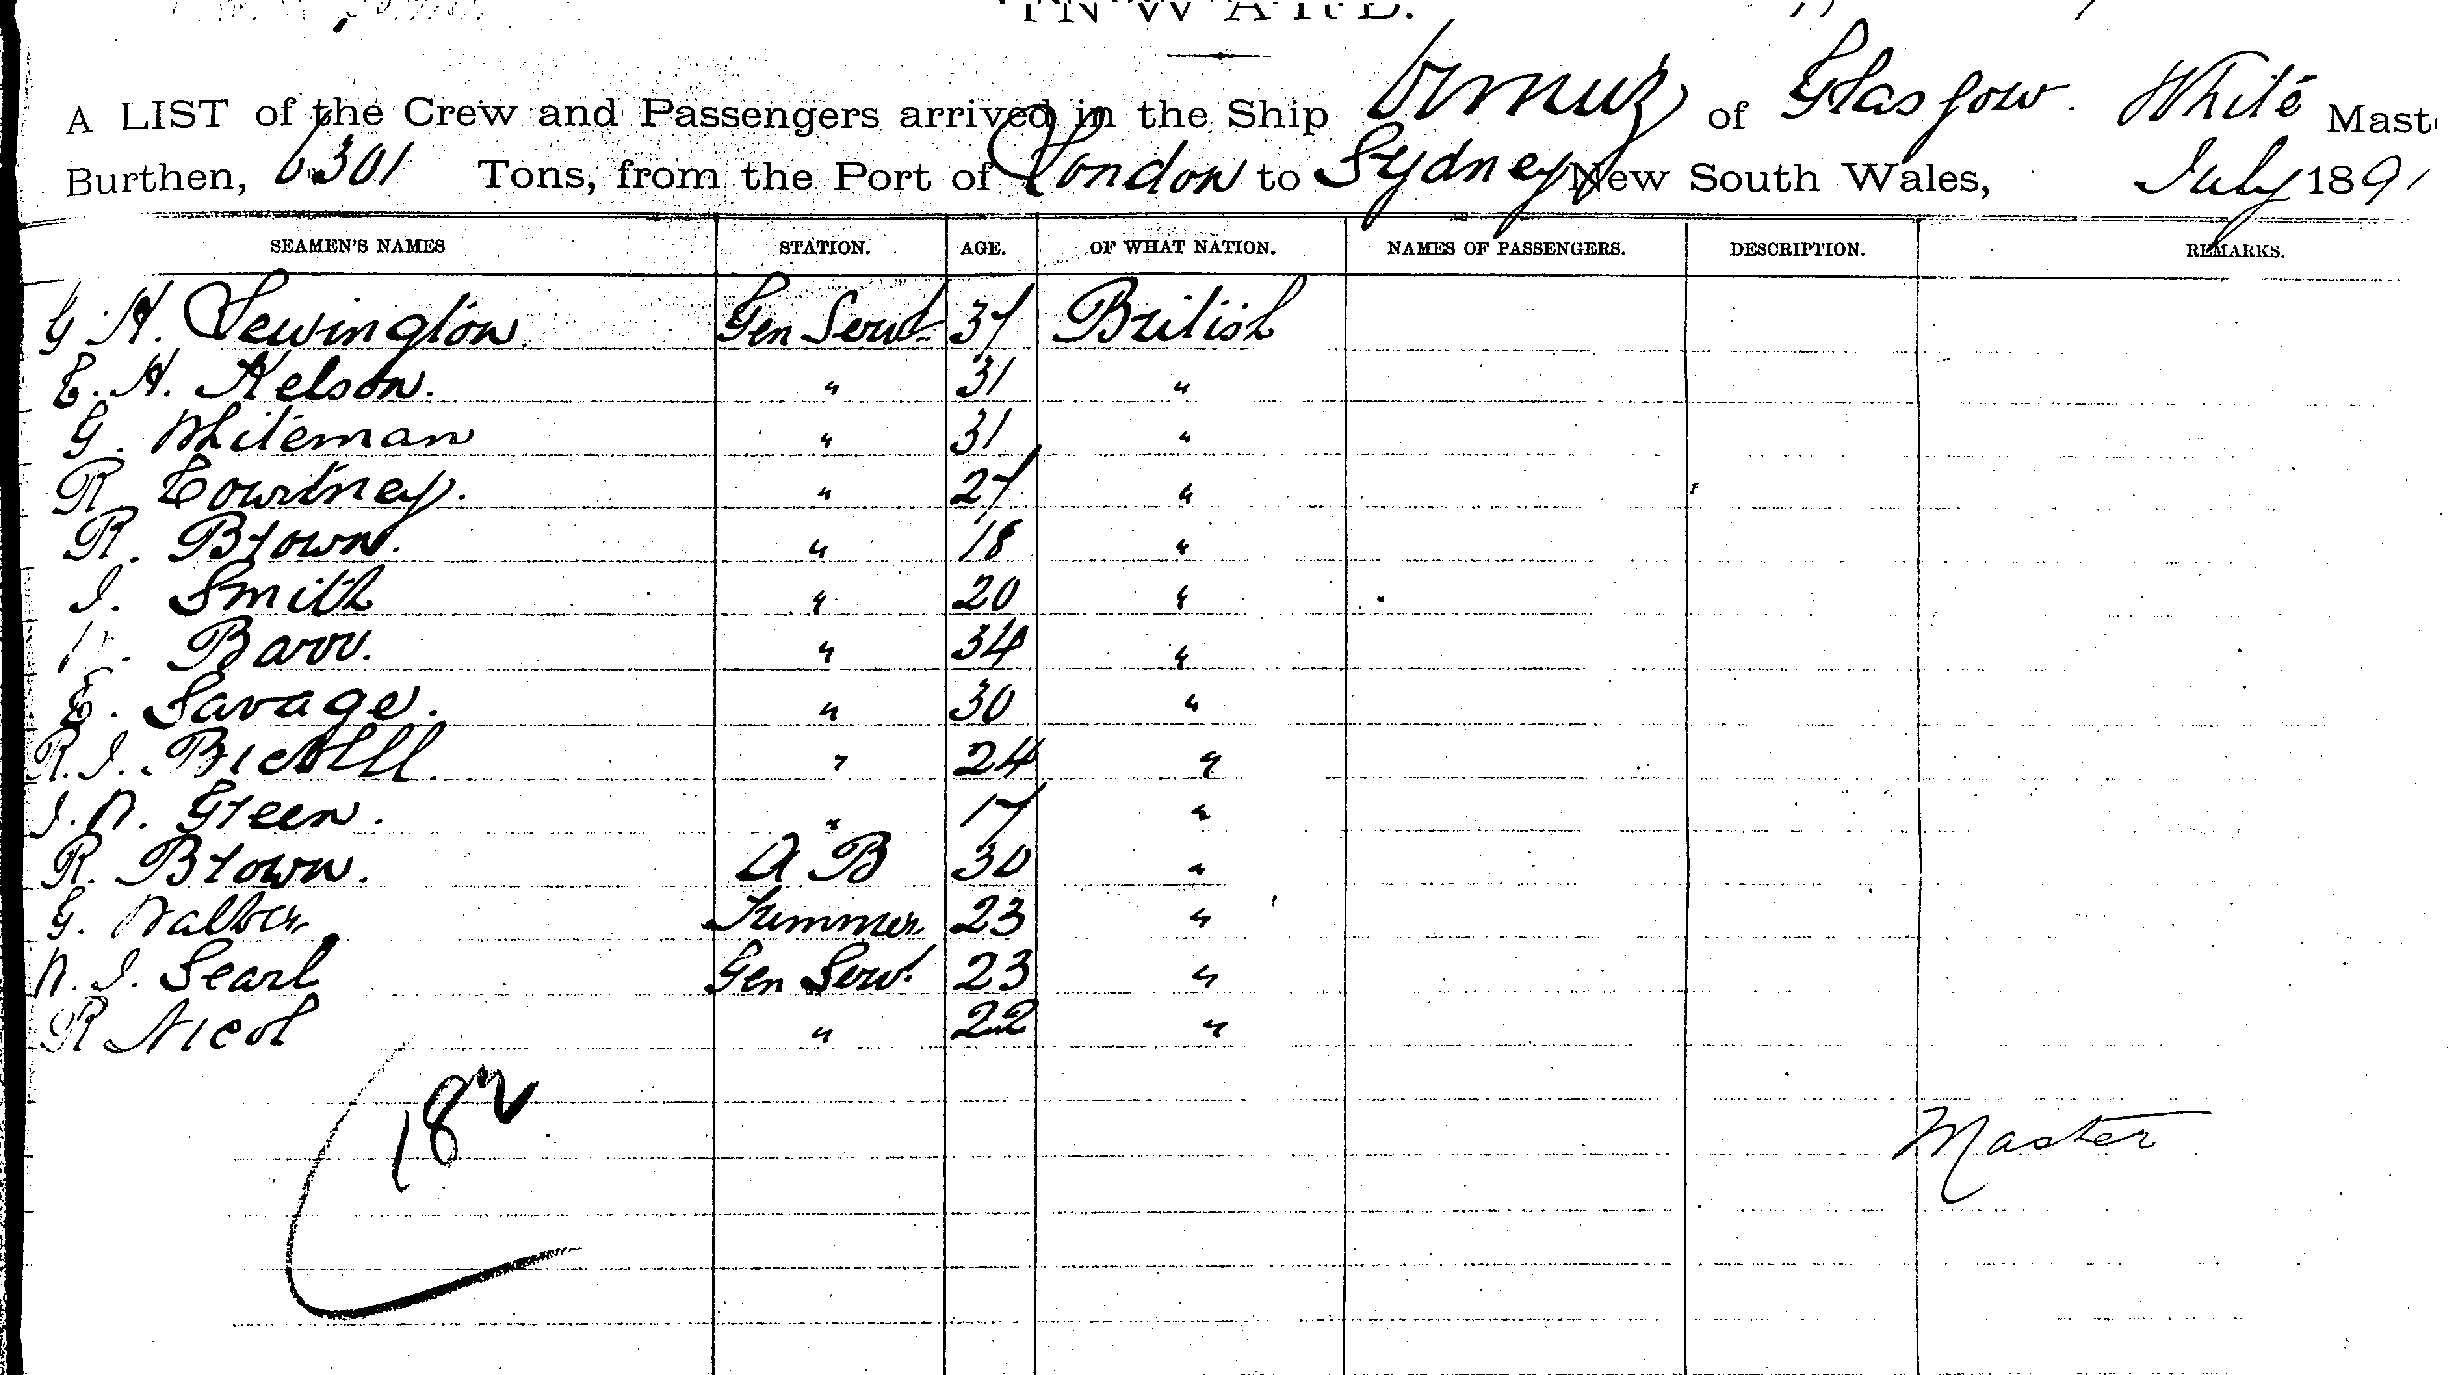 INWARD.
A LIST of the Crew and Passengers arrived in the Ship Ormuz of Glasgow. White Mast
Burthen, 6301 Tons, from the Port of London to Sydney New South Wales, July 1891
SEAMEN'S NAMES STATION. AGE. OF WHAT NATION. NAMES OF PASSENGERS. DESCRIPTION. REMARKS.
G. H. Lewington Gen Servt 37 British
E. H. Kelson. " 31 "
G. Whiteman " 31 "
R Courtney. " 27 "
R. Brown. " 18 "
J. Smith " 20 "
Barr. " 34 "
E. Savage. " 30 "
R. J. " 24 "
J. W. Green. " 17 "
R. Brown. A B 30 "
G. Trimmer 23 "
W. J. Searl Gen Servt 23 "
R Nicol " 22 "
182
Master